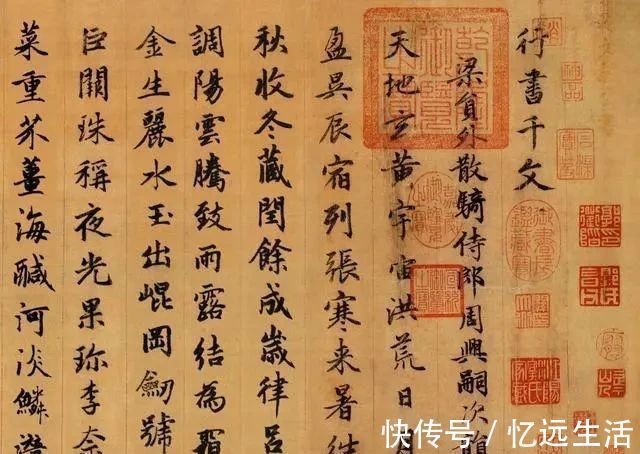 行書千文
梁員外散騎侍郎周興嗣次韻
天地玄黃宇宙洪荒日月
盈昃辰宿列張寒来暑往
秋收冬藏閏餘成歲律呂
調陽雲騰致雨露結為霜
金生麗水玉出崐岡劒號
巨闕珠稱夜光果珍李柰
菜重芥薑海醎河淡鱗潛
快传号／忆远生活